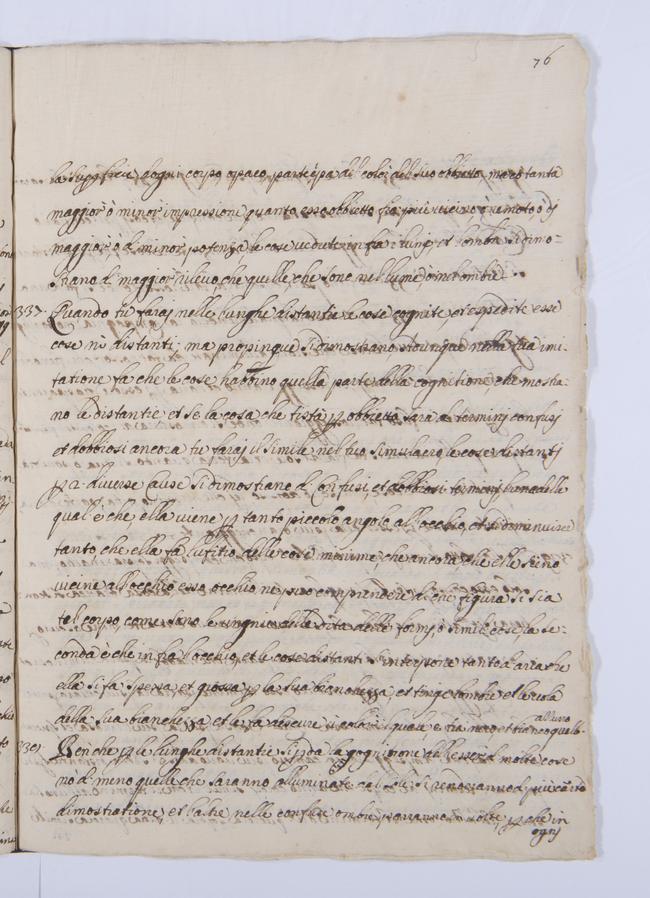 76
la superficie dogni corpo opaco participa del color del suo obbietto ma co tanta
maggior ò minor impressione quanto esso obbietto fia più vicino ò remoto ò dj
maggior, ò di minor potenza le cose vedute infra i lumj, et lombra si dimo-
strano di maggior rilevo che quelle, che sono nel lume ò nel ombre
337. Quando tu faraj nelle lunghe distantie le cose cognite, et espedite esse
cose nõ distanti; ma propinque si dimostrano adunque nella tua imi-
tatione fa che le cose habbino quella parte della cognitione, che mostra-
no le distantie, et se la cosa che ti sta p obbietto sarà di terminj confusj
et dobbiosi ancora tu faraj il simile nel tuo simulacro, le cose distantj
p 2 diverse cause si dimostrano di confusi, et dobbiosi terminj luna delle
qual è che ella viene p tanto piccolo angolo all occhio, et si diminuisce
tanto, che ella fa lufitio delle cose minime, che ancora che elle siino
vicine all occhio esso occhio ne puo comprendere di che figura si sia
tal corpo, come sono le ungnie delle dita delle formj, ò simile cose la se-
conda è che infra l occhio, et le cose distanti s interpone tanto d aria che
ella si fa spessa, et grossa, p la sua bianchezza, et tenge lombre el le vela
della sua bianchezza et le fa descure
alluro
Benche p le lunghe distantie si perda la cognitione dell essere di molte cose
no di meno quelle che saranno alluminate dal sole si renderanno di piu certa
dimostratione, et laltre nelle confuse ombre parranno in volte, p che in
ognj